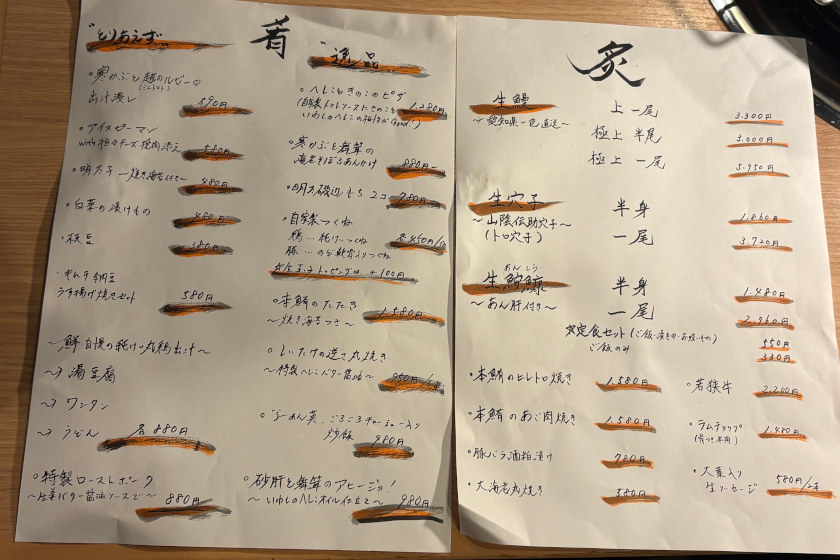 肴
"とりあえず"
・寒かぶと越のルビーの
(ミニトマト)
出汁浸し
590円
・アイスピーマン
with 担々チーズ挽肉添え
580円
・明太子 〜焼き海苔付き〜
480円
・白菜の漬けもの
480円
・枝豆
380円
・キムチ納豆
うす揚げ焼きセット
580円
〜鮮 自慢の 丸鶏出汁〜
→ 湯豆腐
→ ワンタン
→ うどん
各880円
・特製ローストポーク
〜生姜バター醤油ソースで〜
880円
"逸品"
・へしこときのこのピザ
(自家製トマトソースにきのこと
いわしのへしこの相性がGood!)
1.280円
・寒かぶと舞茸の
海老そぼろあんかけ
880円
・明太磯辺もち 2コ
780円
・自家製つくね
鶏…
豚…のど軟骨入りつくね
各450円/
トッピングは +100円
・本鮪のたたき
〜焼き海苔つき〜
1.580円
・しいたけの逆さ丸焼き
〜特製へしこバター醤油〜
950円
・らーめん菜、ごろごろチャーシュー入り
炒飯
980円
・砂肝と舞茸のアヒージョ!
〜いわしのへしこオイル仕立て〜
980円
炙
生鰻
〜愛知県一色直送〜
上 一尾
3.300円
極上 半尾
3.000円
極上 一尾
5.950円
生穴子
〜山陰伝助穴子〜
(トロ穴子)
半身
1.860円
一尾
3.720円
あんこう
生鮟鱇
〜あん肝付き〜
半身
1.480円
一尾
2.960円
定食セット(ご飯・漬もの・お吸いもの)
550円
ご飯のみ
330円
・本鮪のヒレトロ焼き
1.580円
・本鮪のあご肉焼き
1.580円
・豚バラ酒粕漬け
780円
・大海老丸焼き
580円
・若狭牛
2.200円
・ラムチョップ
1.480円
・大葉入り
生ソーセージ
580円/2本